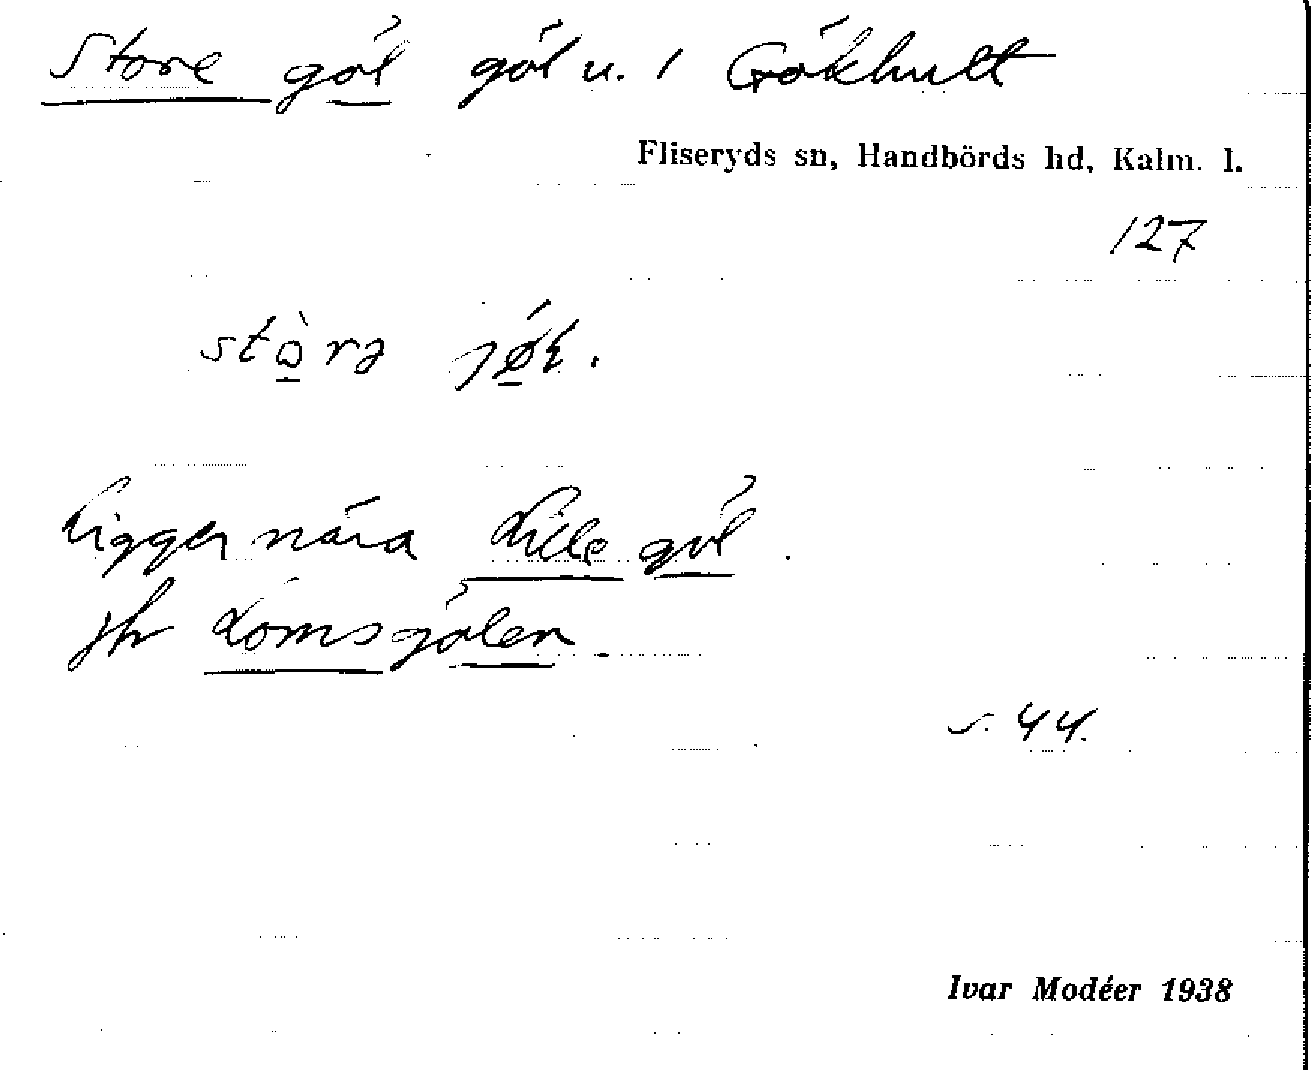 Store göl göl u. 1 Gökhult
Fliseryds sn, Handbörds hd, Kalm. l.
127
Ligger nära Lille göl.
jfr Lomsgölen.
s. 44.
Ivar Modéer 1938